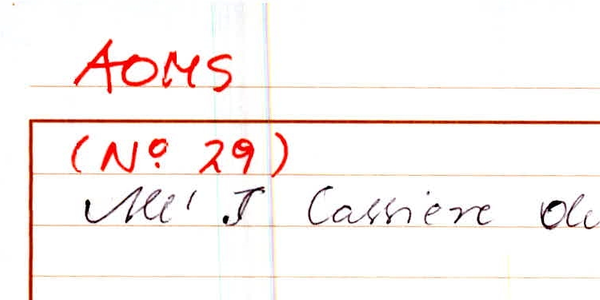 AOMS
(Nº 29)
J Cassiere